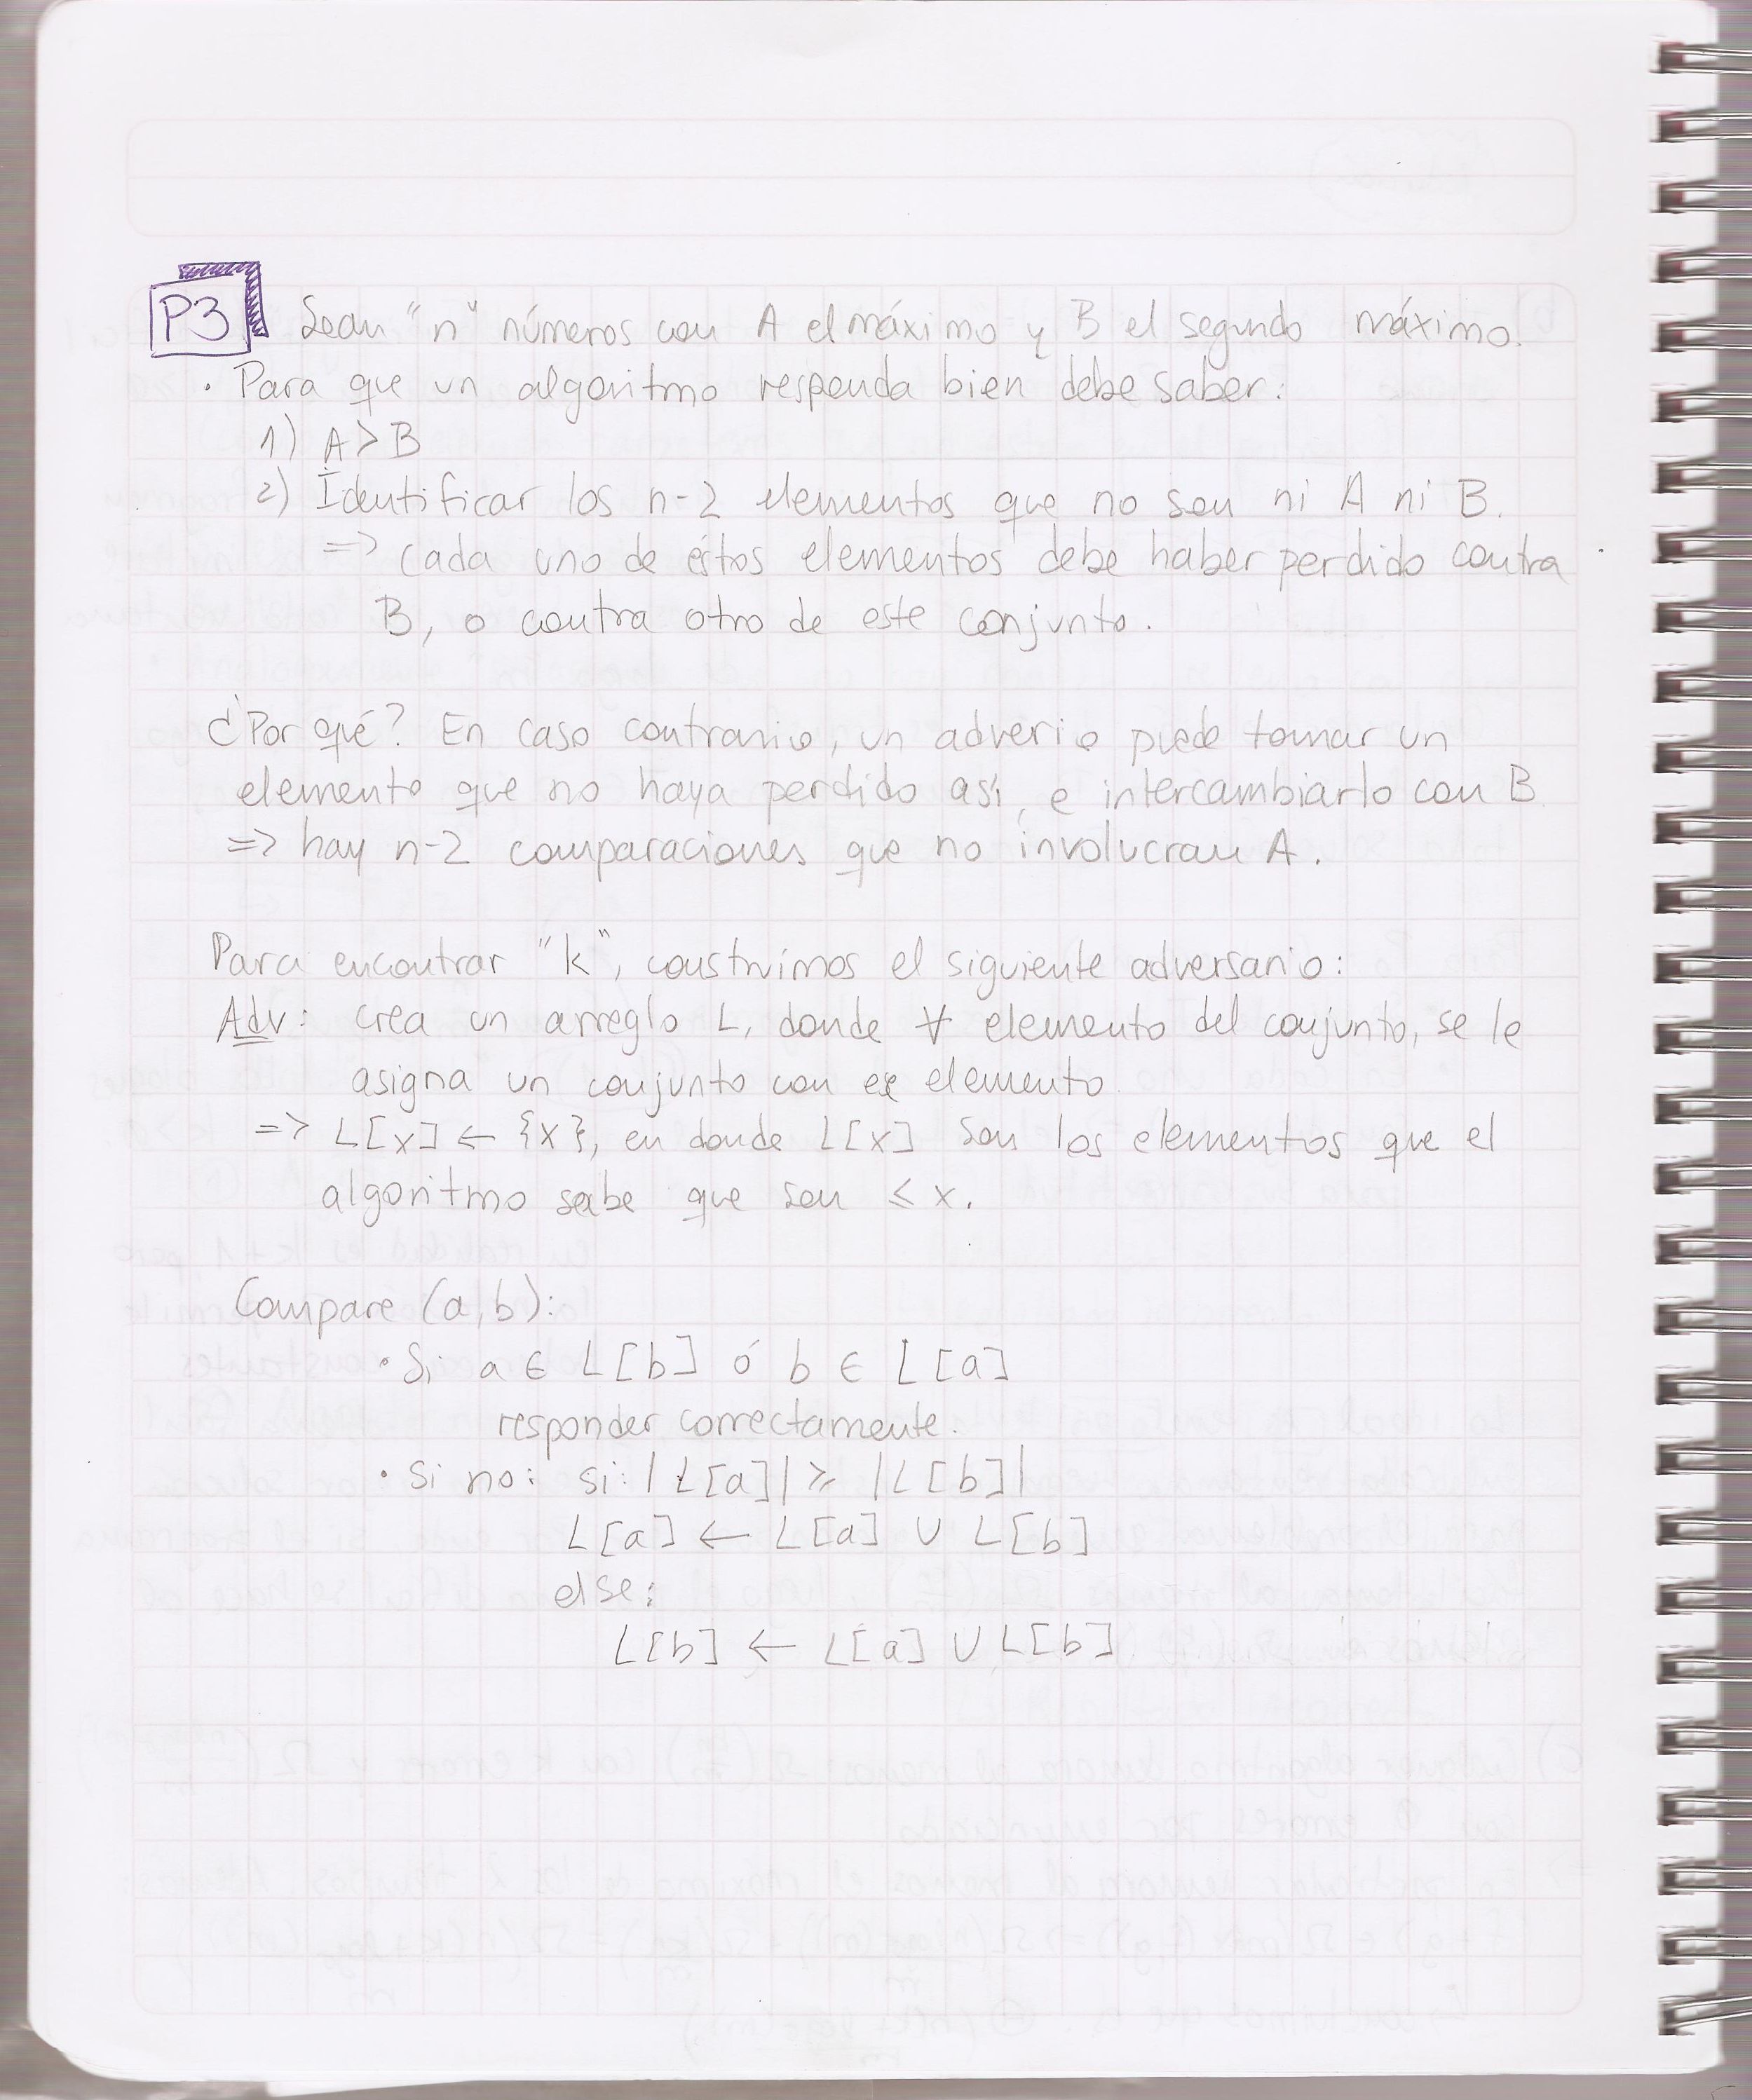 P3 Sean "n" números con A el máximo y B el segundo máximo.
· Para que un algoritmo responda bien debe saber:
1) A > B
2) Identificar los n-2 elementos que no son ni A ni B.
=> cada uno de éstos elementos debe haber perdido contra
B, o contra otro de este conjunto.
¿Por qué? En caso contrario, un adverio puede tomar un
elemento que no haya perdido así, e intercambiarlo con B
=> hay n-2 comparaciones que no involucran A.
Para encontrar "k", construimos el siguiente adversario:
Adv: crea un arreglo L, donde ∀ elemento del conjunto, se le
asigna un conjunto con ese elemento.
=> L[x] ← {x}, en donde L[x] son los elementos que el
algoritmo sabe que son ≤ x.
Compare (a,b):
· Si a ∈ L[b] ó b ∈ L[a]
responder correctamente.
· Si no: si: |L[a]| ≥ |L[b]|
L[a] ← L[a] ∪ L[b]
else:
L[b] ← L[a] ∪ L[b]